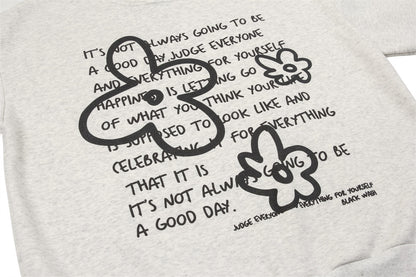 IT'S NOT ALWAYS GOING TO BE
A GOOD DAY JUDGE EVERYONE
AND EVERYTHING FOR YOURSELF
HAPPINESS IS LETTING GO
OF WHAT YOU THINK YOUR LIFE
IS SUPPOSED TO LOOK LIKE AND
CELEBRATING IT FOR EVERYTHING
THAT IT IS
IT'S NOT ALWAYS GOING TO BE
A GOOD DAY.
JUDGE EVERYONE EVERYTHING FOR YOURSELF
BLACK WABI